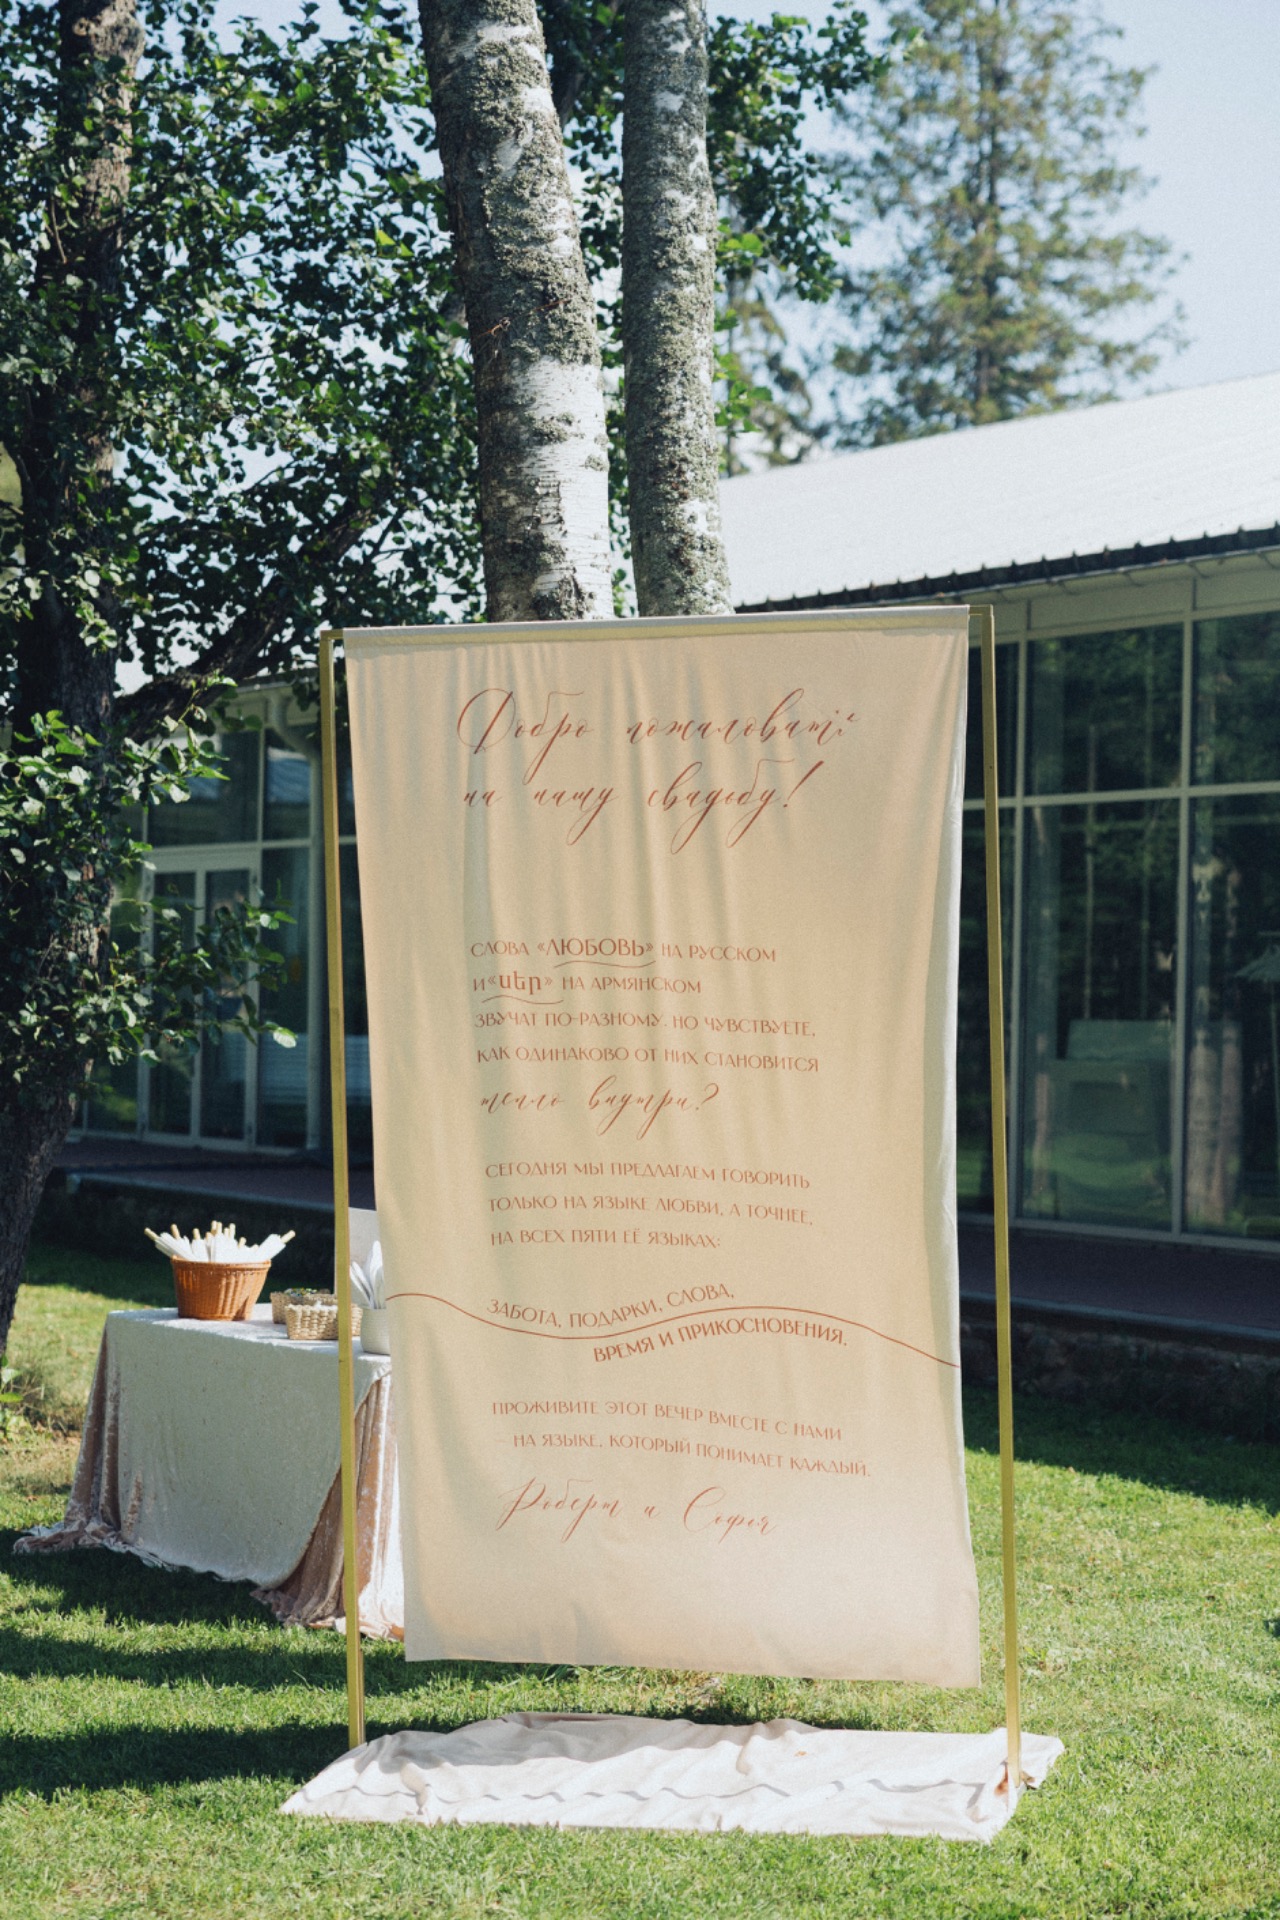 Добро пожаловать
на нашу свадьбу!
СЛОВА «ЛЮБОВЬ» НА РУССКОМ
И «սեր» НА АРМЯНСКОМ
ЗВУЧАТ ПО-РАЗНОМУ. НО ЧУВСТВУЕТЕ,
КАК ОДИНАКОВО ОТ НИХ СТАНОВИТСЯ
тепло внутри?
СЕГОДНЯ МЫ ПРЕДЛАГАЕМ ГОВОРИТЬ
ТОЛЬКО НА ЯЗЫКЕ ЛЮБВИ, А ТОЧНЕЕ,
НА ВСЕХ ПЯТИ ЕЁ ЯЗЫКАХ:
ЗАБОТА, ПОДАРКИ, СЛОВА,
ВРЕМЯ И ПРИКОСНОВЕНИЯ.
ПРОЖИВИТЕ ЭТОТ ВЕЧЕР ВМЕСТЕ С НАМИ
– НА ЯЗЫКЕ, КОТОРЫЙ ПОНИМАЕТ КАЖДЫЙ.
Роберт и Софья